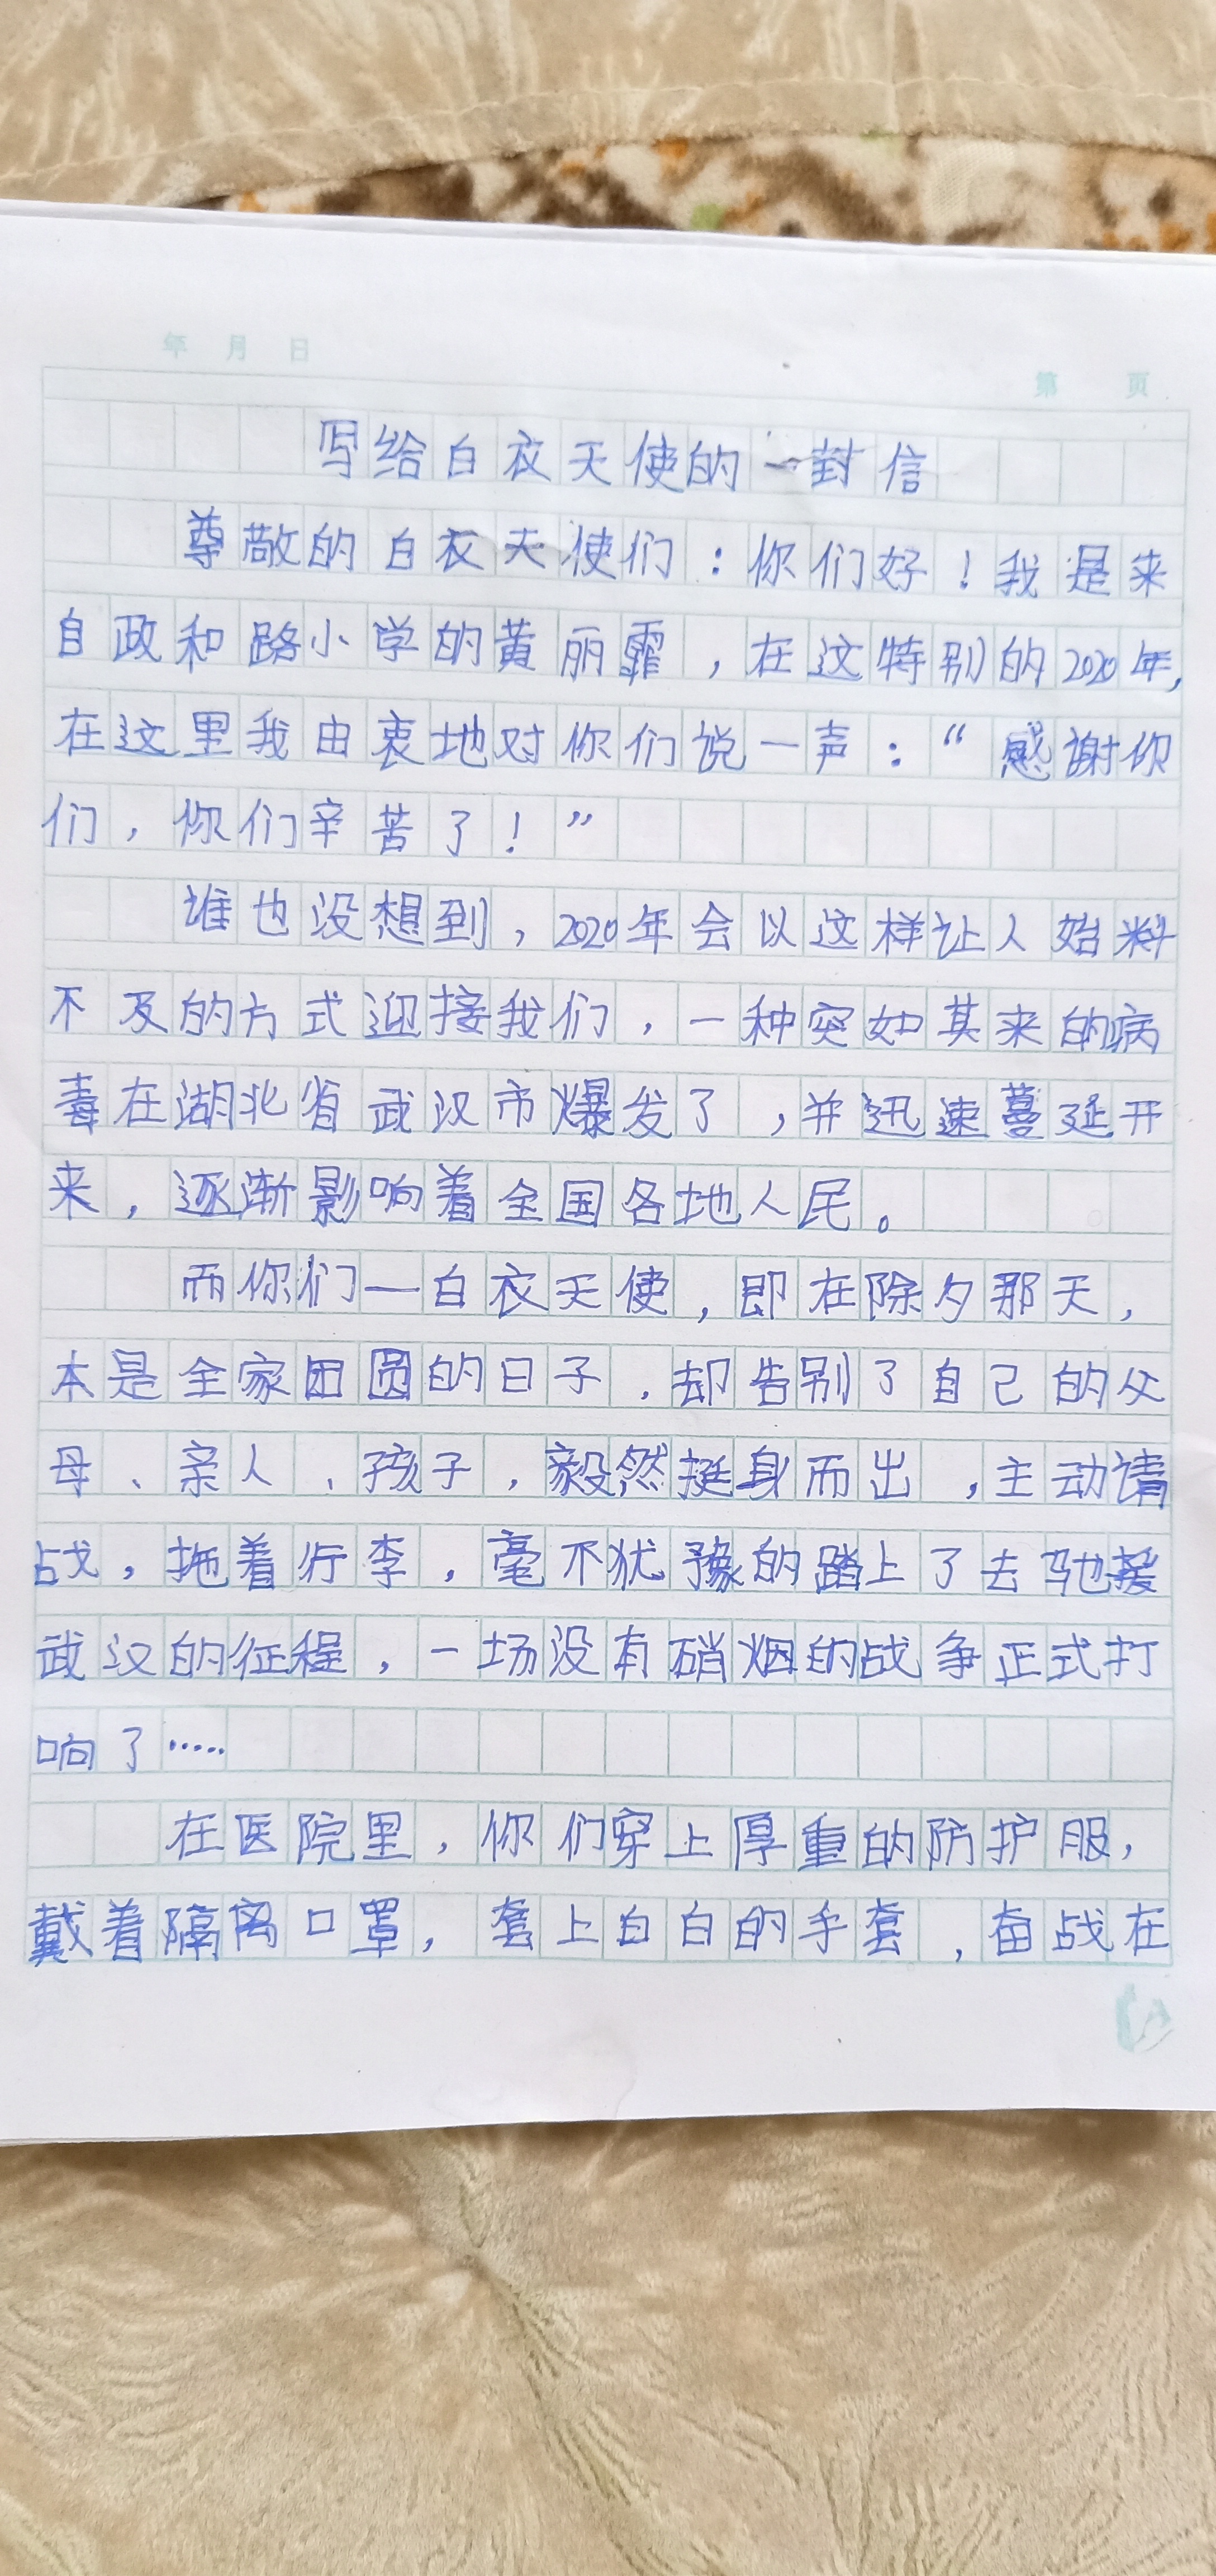 年 月 日
第 页
写给白衣天使的一封信
尊敬的白衣天使们:你们好!我是来
自政和路小学的黄丽霏,在这特别的2020年,
在这里我由衷地对你们说一声:“感谢你
们,你们辛苦了!”
谁也没想到,2020年会以这样让人始料
不及的方式迎接我们,一种突如其来的病
毒在湖北省武汉市爆发了,并迅速蔓延开
来,逐渐影响着全国各地人民。
而你们—白衣天使,即在除夕那天,
本是全家团圆的日子,却告别了自己的父
母、亲人、孩子,毅然挺身而出,主动请
战,拖着行李,毫不犹豫的踏上了去驰援
武汉的征程,一场没有硝烟的战争正式打
响了……
在医院里,你们穿上厚重的防护服,
戴着隔离口罩,套上白白的手套,奋战在